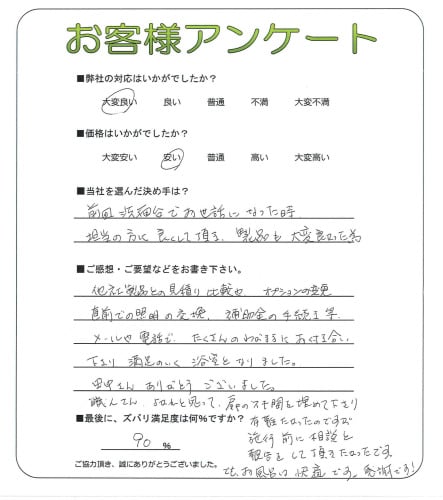 お客様アンケート
■弊社の対応はいかがでしたか？
大変良い 良い 普通 不満 大変不満
■価格はいかがでしたか？
大変安い 安い 普通 高い 大変高い
■当社を選んだ決め手は？
前回 洗面台でお世話になった時
担当の方に良くして頂き、製品も大変良かった為
■ご感想・ご要望などをお書き下さい。
他社製品との見積り比較や、オプションの変更
直前での照明の交換、補助金の手続き等
メールや電話で、たくさんのわがままにお付き合い
下さり 満足のいく 浴室となりました。
田中さん ありがとう ございました。
職人さん、よかれと思って、扉のスキ間を埋めて下さり
■最後に、ズバリ満足度は何％ですか？
90 ％
有難かったのですが
施行前に相談と
報告をして頂きたかったです。
でも、お風呂は快適です。感謝です!
ご協力頂き、誠にありがとうございました。